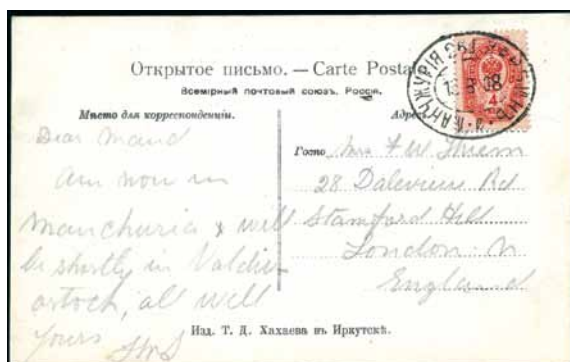 Открытое письмо. — Carte Postale
Всемірный почтовый союзъ. Россія.
Мѣсто для корреспонденціи.
Dear Maud
am now in
Manchuria & will
be shortly in Valdiv-
ostock, all well
yours
Адрес
Госпо
Mrs F W Thiem
28 Daleview Rd
Stamford Hill
London. N
England
МАНЧЖУРІЯ
08
4
Изд. Т. Д. Хахаева въ Иркутскѣ.